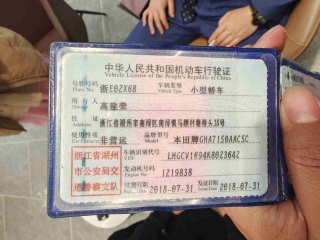 中华人民共和国机动车行驶证
Vehicle License of the People's Republic of China
号牌号码 浙E02X68 车辆类型 小型轿车
Plate No. Vehicle Type
所有人 高建荣
Owner
住址 浙江省湖州市南浔区南浔镇马腰村塘桥头38号
Address
使用性质 非营运 品牌型号 本田牌GHA7150AAC5C
Use Character Model
浙江省湖州
市公安局交
通警察支队
车辆识别代号 LHGCV1694K8023642
VIN
发动机号码 1219838
Engine No.
注册日期 2018-07-31 发证日期 2018-07-31